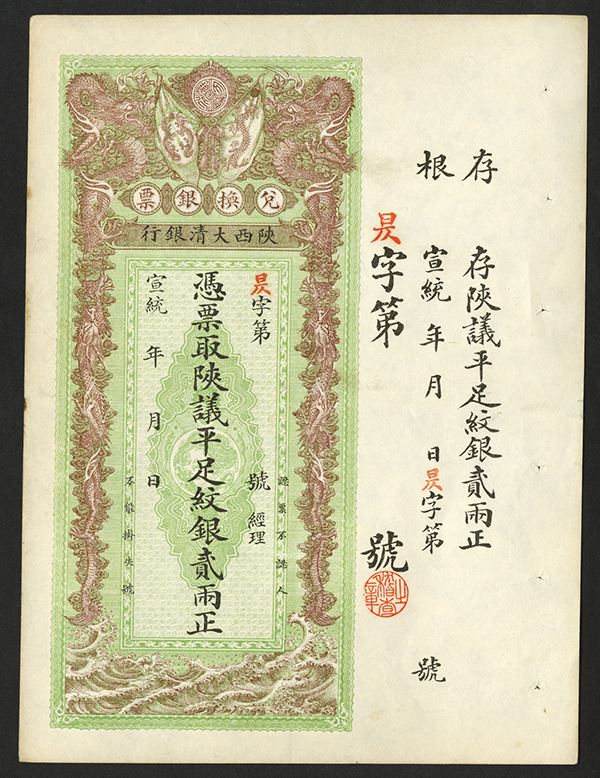 存根
存陝議平足紋銀貳兩正
宣統 年 月 日昃字第 號
昃字第 號
兌換銀票
陝西大清銀行
認票不認人
昃字第 號 經理
憑票取陝議平足紋銀貳兩正
宣統 年 月 日
不能掛失號